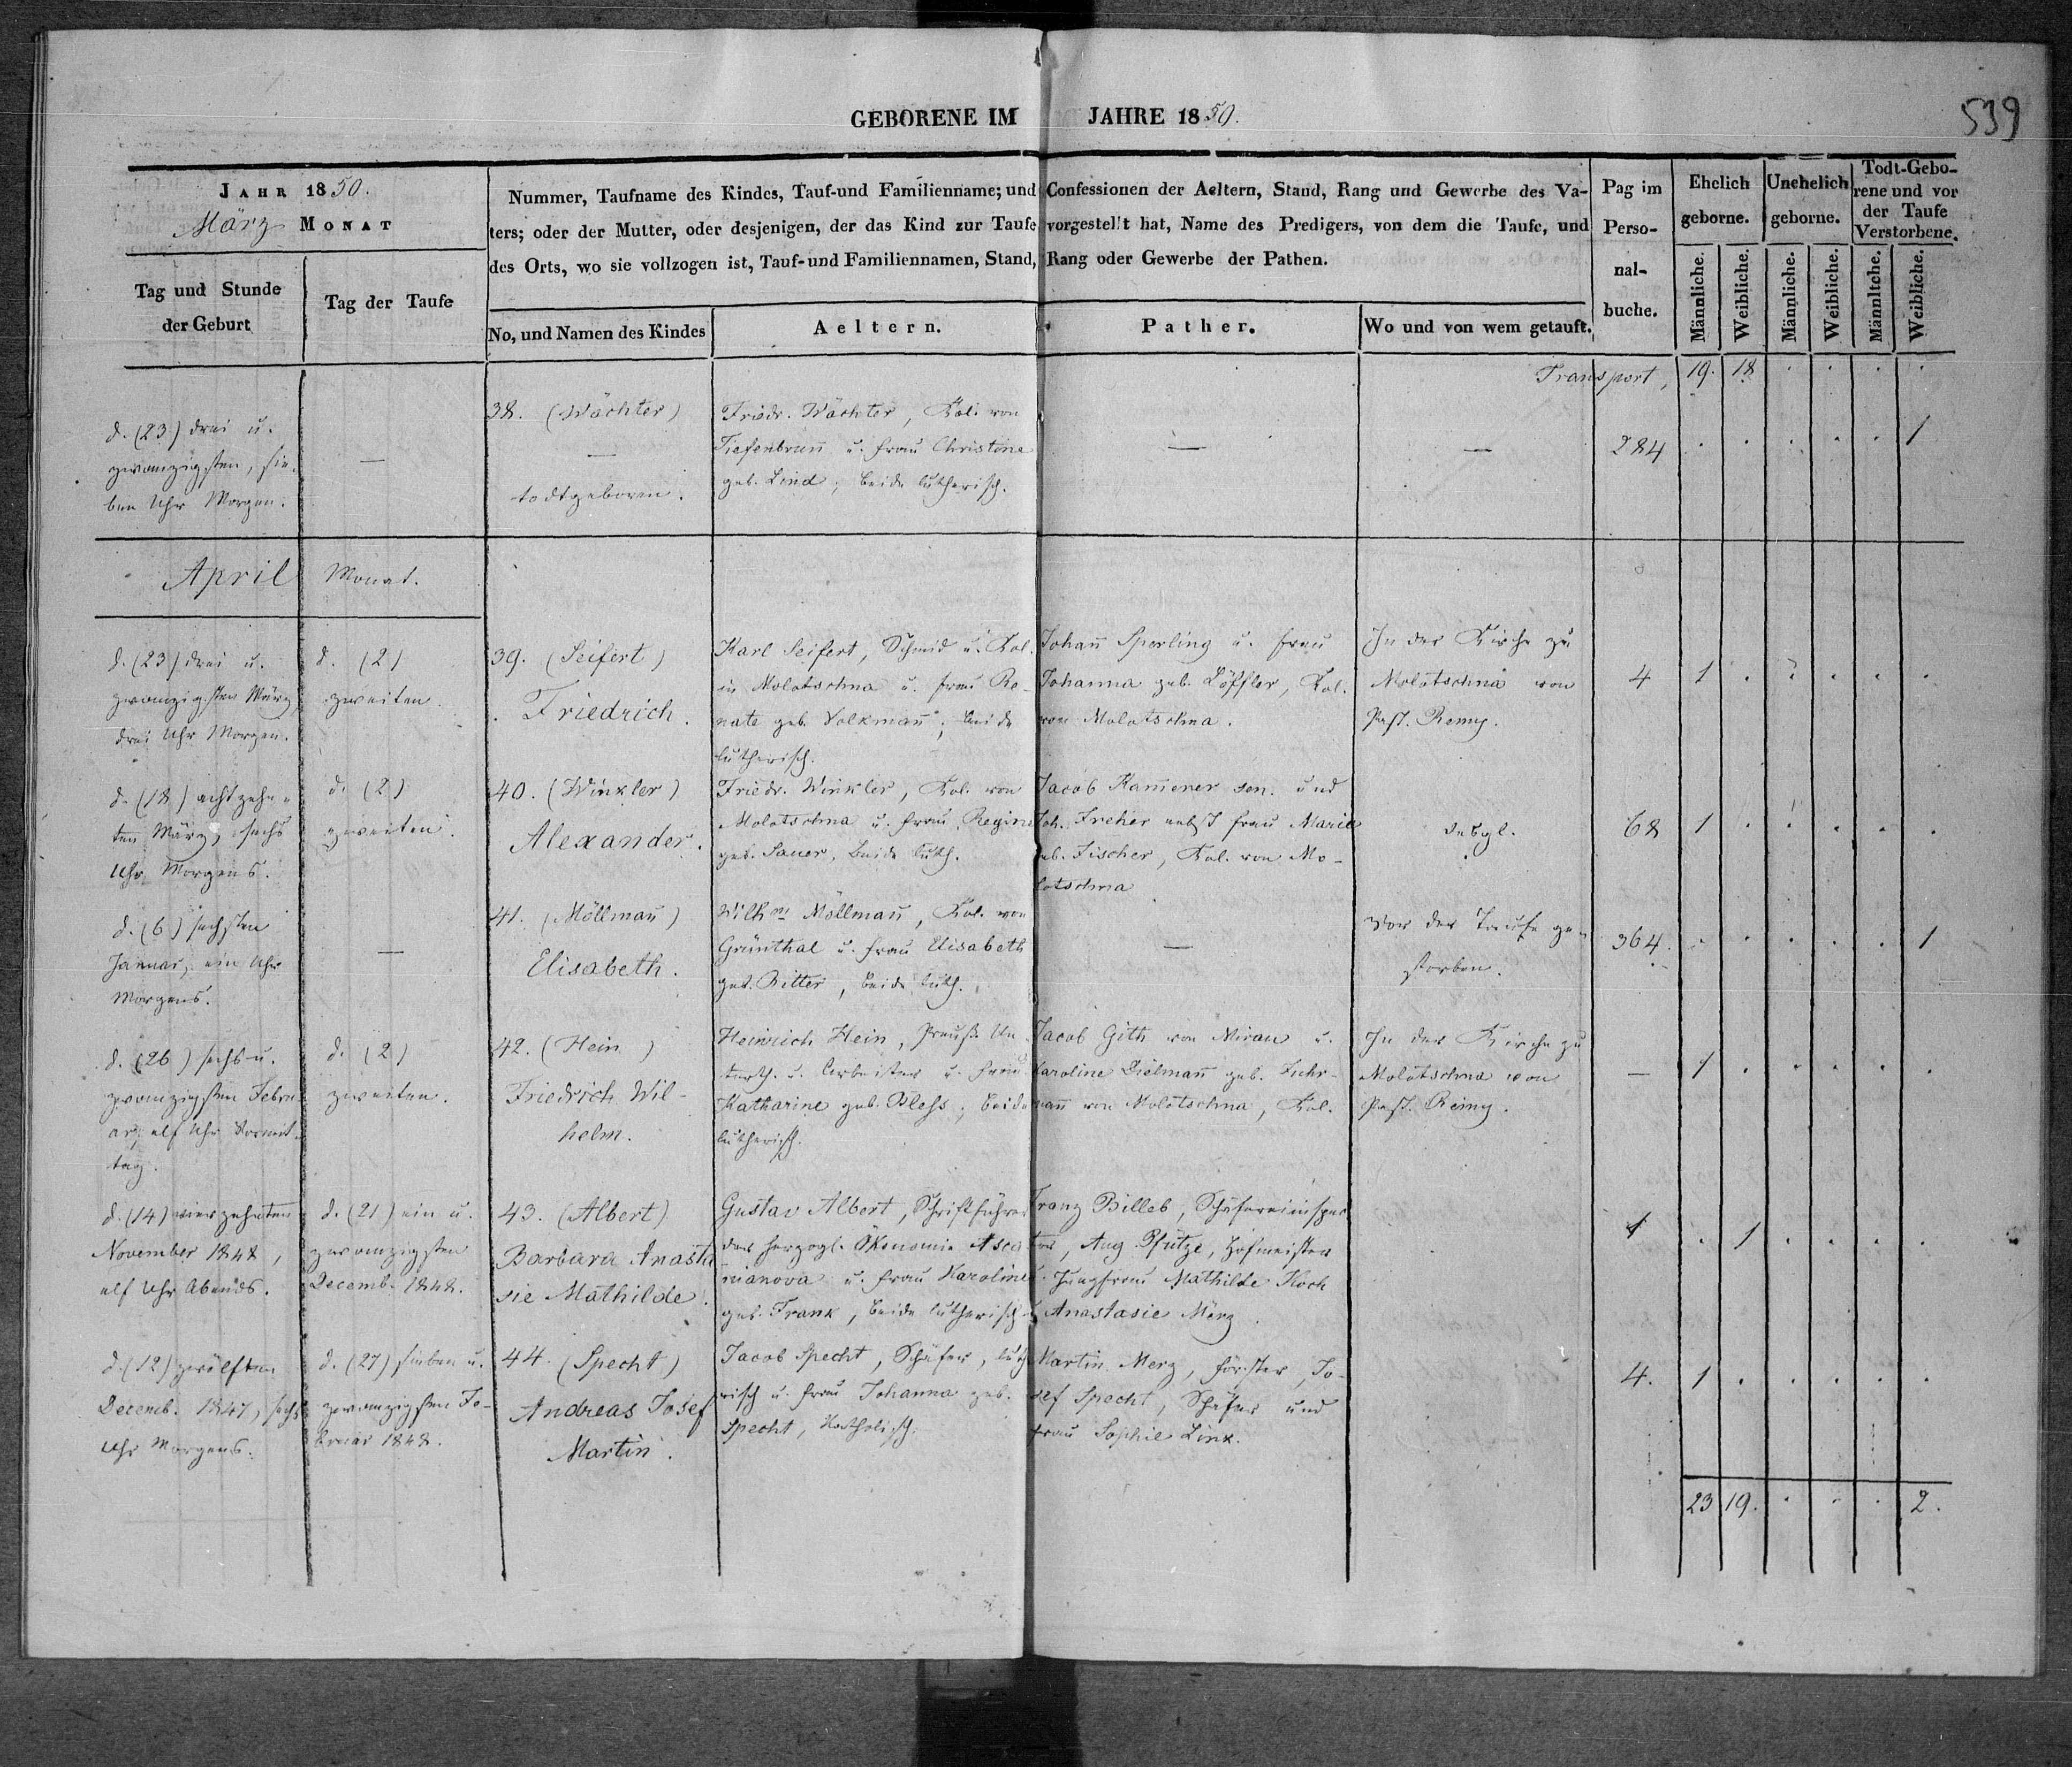 GEBORENE IM JAHRE 1850.
539
JAHR 1850.
März MONAT
Tag und Stunde
der Geburt
Tag der Taufe
Nummer, Taufname des Kindes, Tauf-und Familienname; und Confessionen der Aeltern, Stand, Rang und Gewerbe des Va-
ters; oder der Mutter, oder desjenigen, der das Kind zur Taufe vorgestellt hat, Name des Predigers, von dem die Taufe, und
des Orts, wo sie vollzogen ist, Tauf-und Familiennamen, Stand, Rang oder Gewerbe der Pathen.
No, und Namen des Kindes
Aeltern.
Pather.
Wo und von wem getauft.
Pag im
Perso-
nal-
buche.
Ehelich
geborne.
Unehelich
geborne.
Todt-Gebo-
rene und vor
der Taufe
Verstorbene.
Männliche.
Weibliche.
Männliche.
Weibliche.
Männliche.
Weibliche.
Transport, 19. 18 . . . .
d. (23) drei u.
zwanzigsten, sie-
ben Uhr Morgen.
—
38. (Wächter)
—
todtgeboren.
Friedr. Wächter, Kol. von
Tiefenbrun̄ u. Frau Christine
geb. Lind; beide lutherisch.
—
—
284 . . . . . 1
April Monat.
d. (23) drei u.
zwanzigsten März,
drei Uhr Morgen.
d. (2)
zweiten.
39. (Seifert)
Friedrich.
Karl Seifert, Schmid u. Kol.
in Molotschna u. Frau Re-
nate geb. Volkman̄; beide
lutherisch.
Johan̄ Sperling u. Frau
Johanna geb. Löffler, Kol.
von Molotschna.
In der Kirche zu
Molotschna von
Past. Remy.
4 1 . . . . .
d. (18) achtzehn-
ten März, sechs
Uhr Morgens.
d. (2)
zweiten.
40. (Winkler)
Alexander.
Friedr. Winkler, Kol. von
Molotschna u. Frau Regine
geb. Sauer, beide luth.
Jacob Kam̄erer sen. und
Joh. Freher nebst Frau Marie
geb. Fischer, Kol. von Mo-
lotschna
desgl.
68 1 . . . . .
d. (6) sechsten
Januar, ein Uhr
Morgens.
—
41. (Möllman̄)
Elisabeth.
Wilhm Möllman̄, Kol. von
Grünthal u. Frau Elisabeth
geb. Ritter, beide luth.
—
vor der Taufe ge-
storben.
364. . . . . . 1
d. (26) sechs u.
zwanzigsten Febru-
ar, elf Uhr Vormit-
tag.
d. (2)
zweiten.
42. (Hein)
Friedrich Wil-
helm.
Heinrich Hein, Preuß. Un-
terth. u. Arbeiter u. Frau
Katharine geb. Bless; beide
lutherisch.
Jacob Gith von Mirau u.
Caroline Dielman̄ geb. Fuhr-
man̄ von Molotschna, Kol.
In der Kirche zu
Molotschna von
Past. Remy.
— 1 . . . . .
d. (14) vierzehnten
November 1848,
elf Uhr Abends.
d. (21) ein u.
zwanzigsten
Decemb. 1848.
43. (Albert)
Barbara Anasta
sie Mathilde.
Gustav Albert, Schriftführer
der herzogl. Ökonomie Asca
nianova u. Frau Karoline
geb. Frank, beide lutherisch
Franz Billeb, Schäfereiinspec
tor, Aug. Pfütze, Hofmeister
u. Jungfrau Mathilde Koch
u. Anastasie März.
. 1 . . . .
d. (12) zwölften
Decemb. 1847, sechs
Uhr Morgens.
d. (27) sieben u.
zwanzigsten Fe-
bruar 1848.
44. (Specht)
Andreas Josef
Martin.
Jacob Specht, Schäfer, luthe
risch u. Frau Johanna geb.
Specht, Katholisch.
Martin Merz, Förster, Jo-
sef Specht, Schäfer und
Frau Sophie Link.
4. 1 . . . . .
23 19. . . . 2.